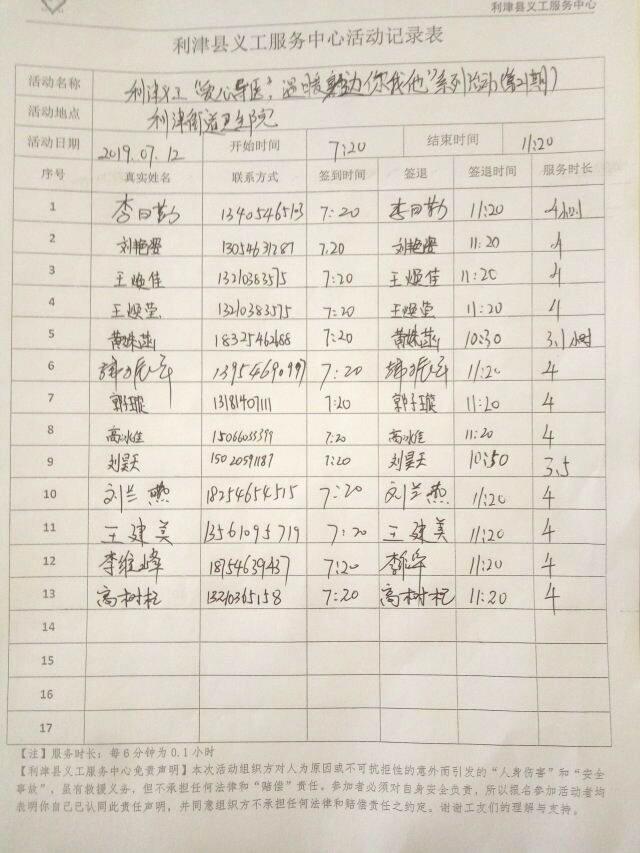 利津县义工服务中心
利津县义工服务中心活动记录表
活动名称 利津义工“爱心导医,温暖 你我他”系列活动(第21期)
活动地点 利津街道卫生院
活动日期 2019.07.12 开始时间 7:20 结束时间 11:20
序号 真实姓名 联系方式 签到时间 签退 签退时间 服务时长
1 李日勤 7:20 李日勤 11:20 4小时
2 13054631287 7:20 11:20 4
3 王焕佳 13210383575 7:20 王焕佳 11:20 4
4 王焕莹 13210383575 7:20 王焕莹 11:20 4
5 黄姝菡 18325462688 7:20 黄姝菡 10:30 3.1小时
6 7:20 11:20 4
7 郭子璇 13181407111 7:20 郭子璇 11:20 4
8 高冰佳 15066033399 7:20 高冰佳 11:20 4
9 刘昊天 15020591187 7:20 刘昊天 10:50 3.5
10 刘兰燕 18254654515 7:20 刘兰燕 11:20 4
11 王建美 13561095719 7:20 王建美 11:20 4
12 李维峰 18754639437 7:20 11:20 4
13 高树杞 13210365158 7:20 高树杞 11:20 4
14
15
16
17
【注】服务时长:每6分钟为0.1小时
【利津县义工服务中心免责声明】本次活动组织方对人为原因或不可抗拒性的意外而引发的“人身伤害”和“安全
事故”,虽有救援义务,但不承担任何法律和“赔偿”责任。参加者必须对自身安全负责,所以报名参加活动者均
表明你自己已认同此责任声明,并同意组织方不承担任何法律和赔偿责任之约定。谢谢工友们的理解与支持。